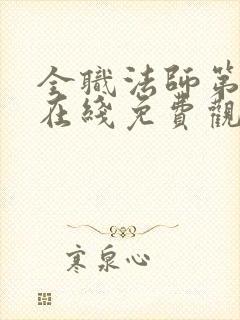 全職法師第
在綫免費觀
寒泉心